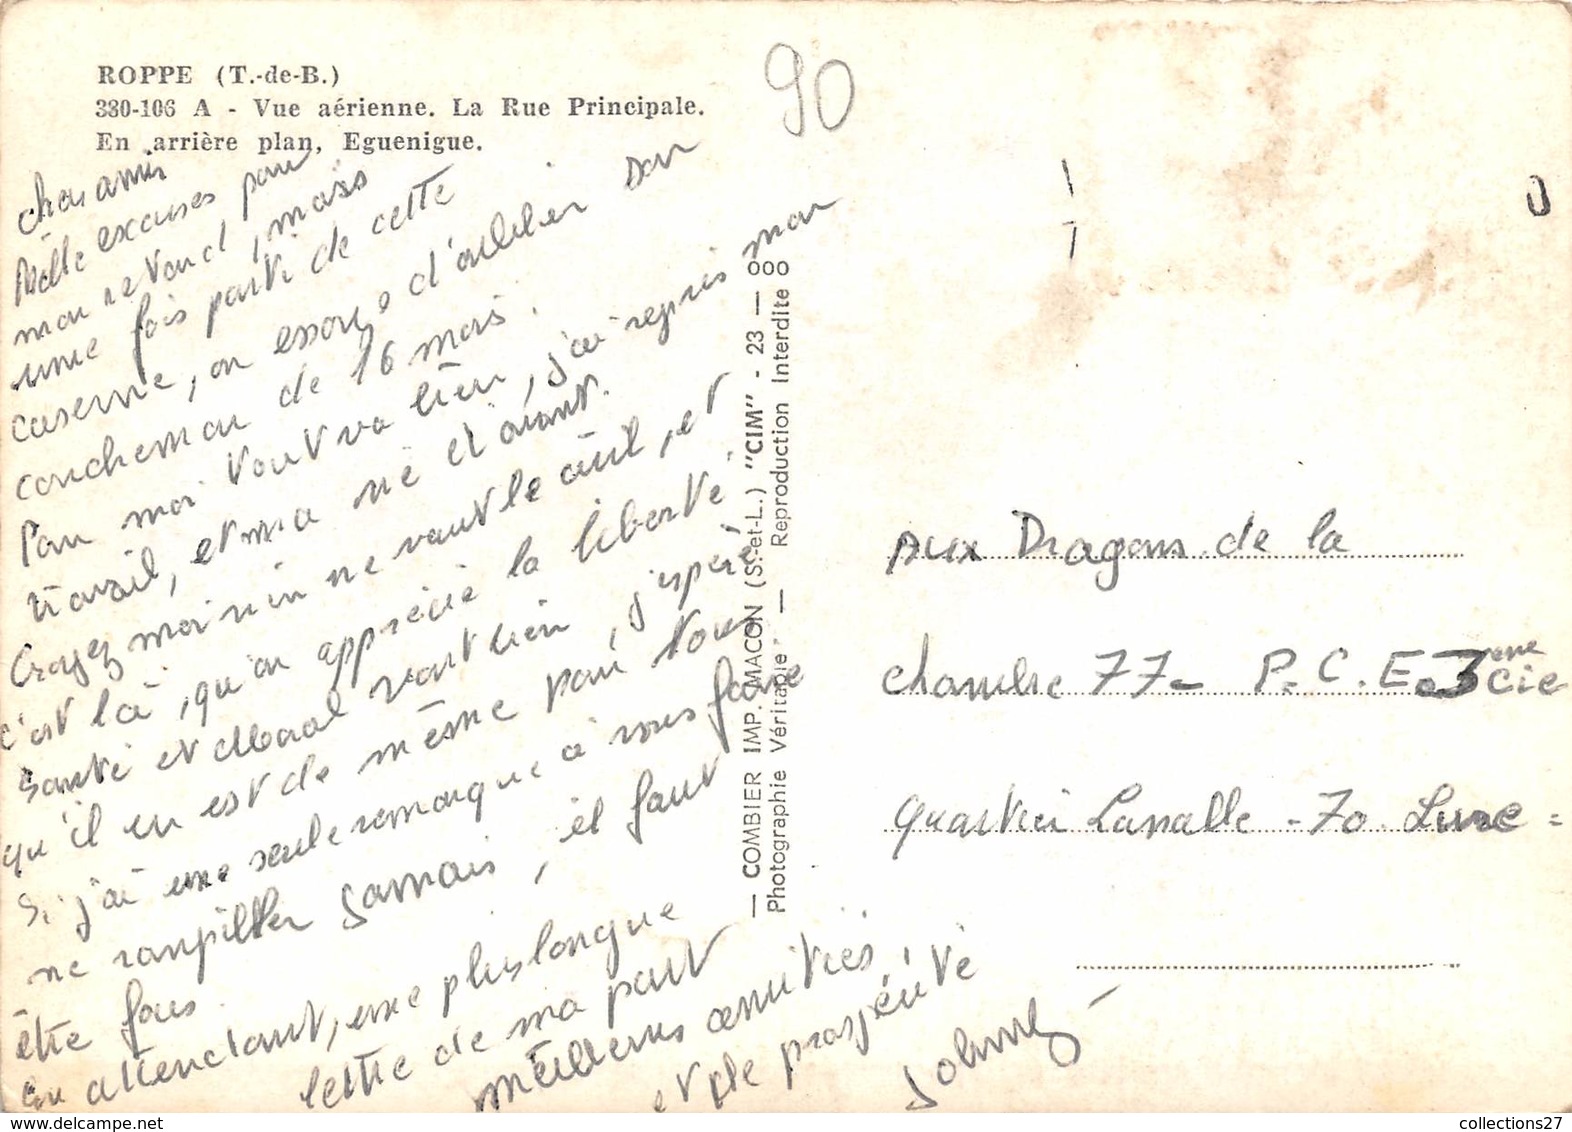 ROPPE (T.-de-B.)
380-106 A - Vue aérienne. La Rue Principale.
En arrière plan, Eguenigue.
90
chers amis
Mille excuses pour
mon retard, mais
une fois parti de cette
caserne, on essaye d'oublier son
cauchemar de 16 mois.
Pour moi tout va bien, j'ai repris mon
travail, et ma vie d'avant.
Croyez moi rien ne vaut le civil, et
c'est là, qu'on apprécie la liberté.
Santé et Moral vont bien, j'espère
qu'il en est de même pour vous
Si j'ai une seule remarque à vous faire
ne rempiller Jamais, il faut
être fous.
En attendant, une plus longue
lettre de ma part
meilleures amitiés,
et de prospérité
Johnny
— COMBIER IMP. MACON (S.-et-L.) "CIM" - 23 — 000
Photographie Véritable — Reproduction Interdite
Aux Dragons de la
chambre 77 - P.C.E. 3ème Cie
Quartier Lasalle - 70 Lure =
collections27